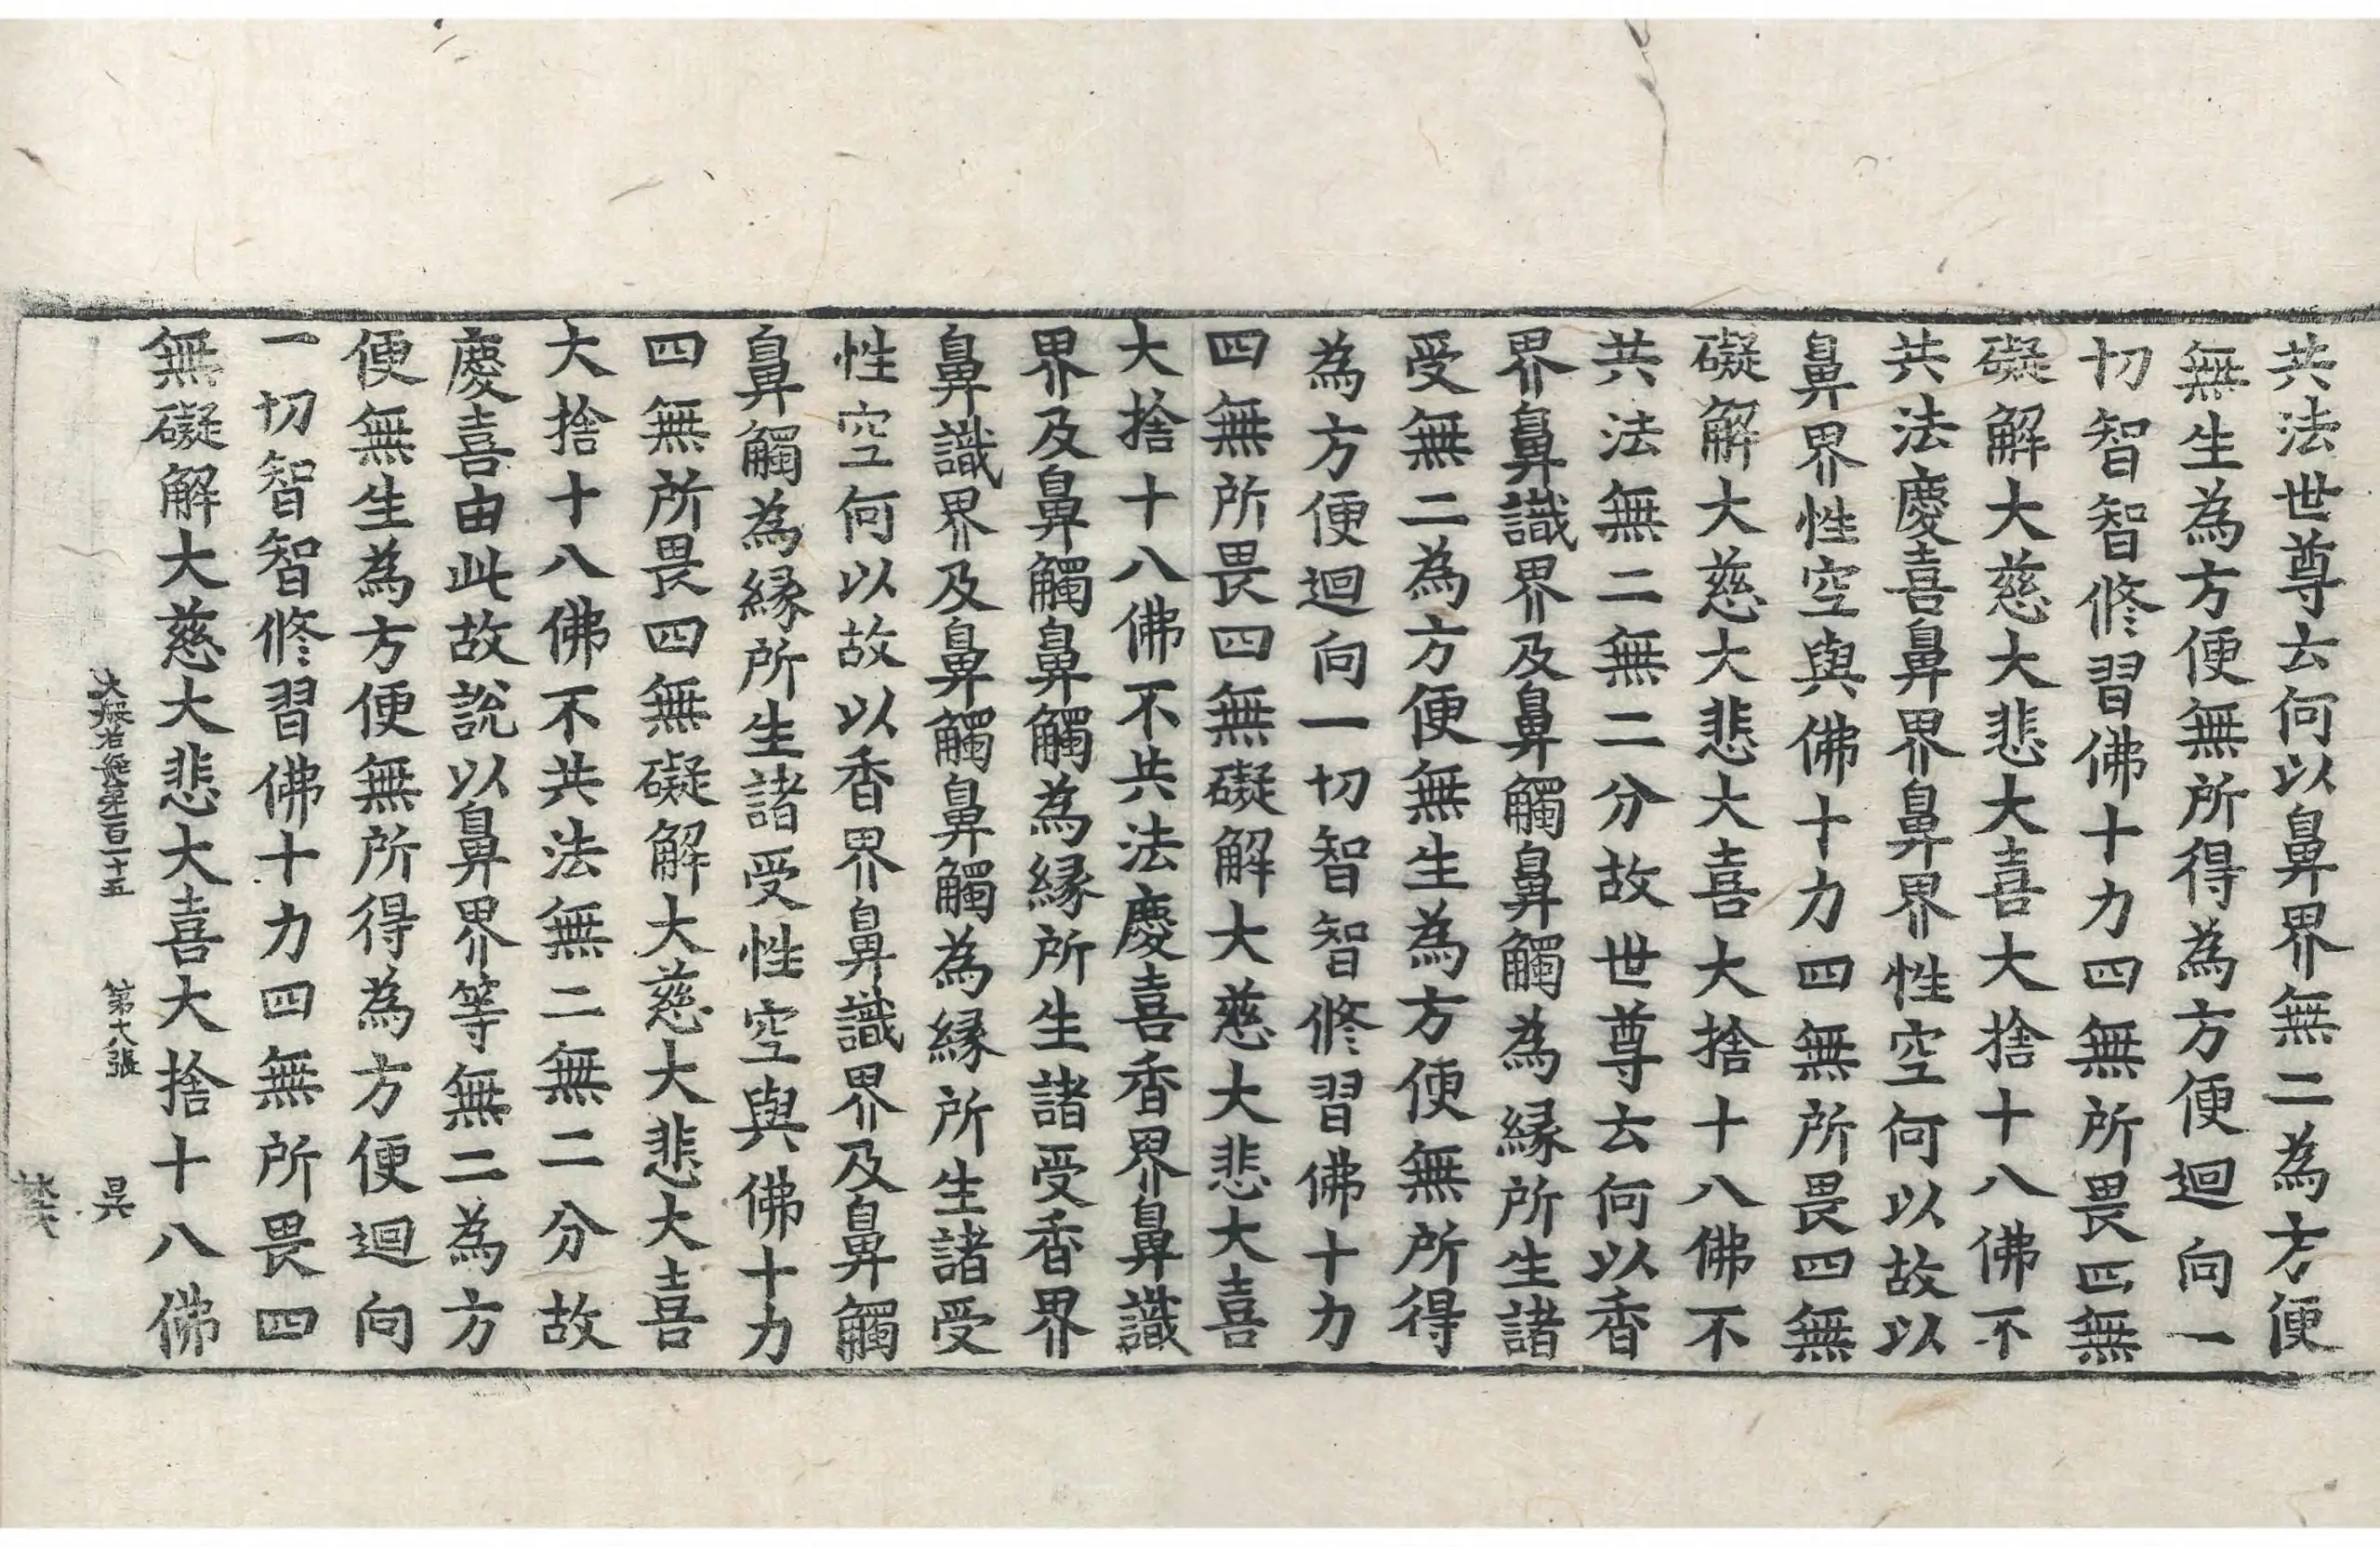 共法世尊云何以鼻界無二為方便
無生為方便無所得為方便迴向一
切智智修習佛十力四無所畏四無
礙解大慈大悲大喜大捨十八佛不
共法慶喜鼻界鼻界性空何以故以
鼻界性空與佛十力四無所畏四無
礙解大慈大悲大喜大捨十八佛不
共法無二無二分故世尊云何以香
界鼻識界及鼻觸鼻觸為縁所生諸
受無二為方便無生為方便無所得
為方便迴向一切智智修習佛十力
四無所畏四無礙解大慈大悲大喜
大捨十八佛不共法慶喜香界鼻識
界及鼻觸鼻觸為縁所生諸受香界
鼻識界及鼻觸鼻觸為縁所生諸受
性空何以故以香界鼻識界及鼻觸
鼻觸為縁所生諸受性空與佛十力
四無所畏四無礙解大慈大悲大喜
大捨十八佛不共法無二無二分故
慶喜由此故說以鼻界等無二為方
便無生為方便無所得為方便迴向
一切智智修習佛十力四無所畏四
無礙解大慈大悲大喜大捨十八佛
大般若經第一百二十五 第十八張 昃